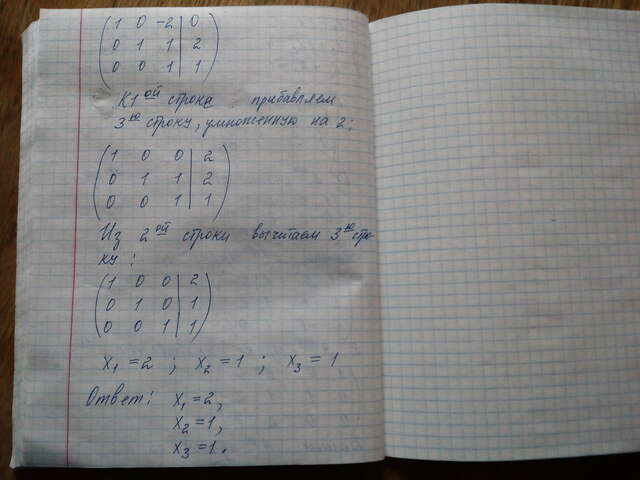 1 0 -2 | 0
0 1 1 | 2
0 0 1 | 1
К 1ой строка прибавляем
3ю строку, умноженную на 2:
1 0 0 | 2
0 1 1 | 2
0 0 1 | 1
Из 2ой строки вычитаем 3ю стро-
ку:
1 0 0 | 2
0 1 0 | 1
0 0 1 | 1
x₁ = 2 ; x₂ = 1 ; x₃ = 1
Ответ: x₁ = 2,
x₂ = 1,
x₃ = 1.